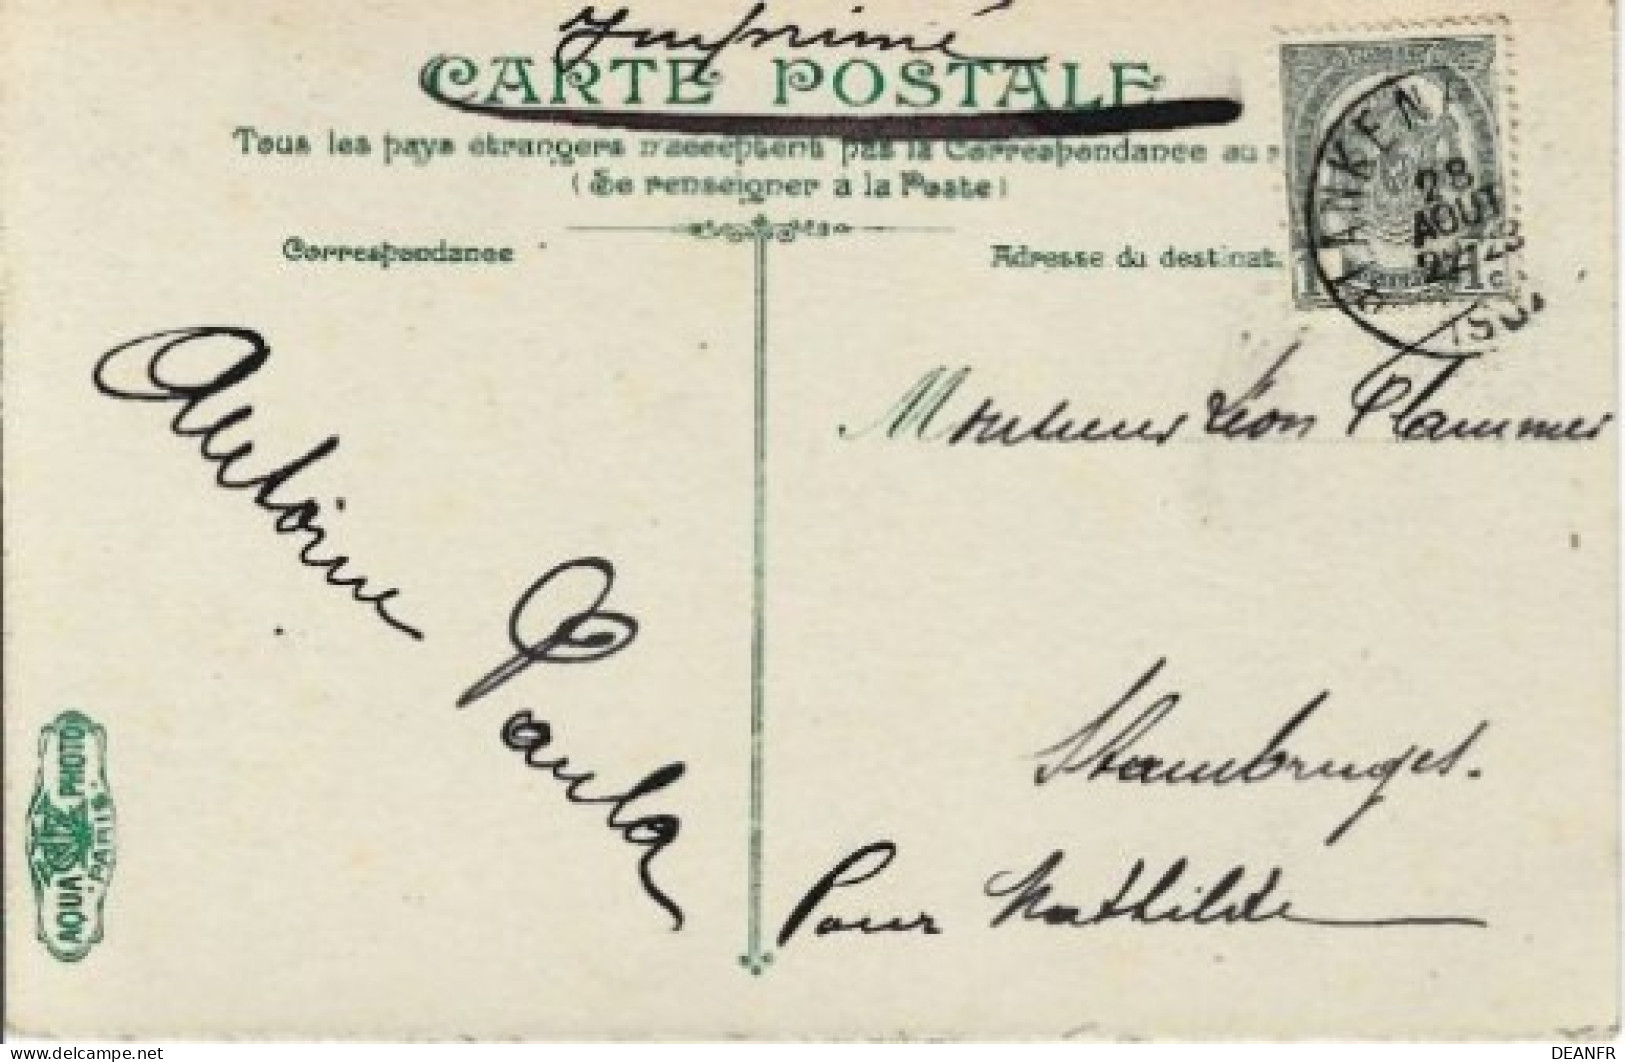 Imprimé
CARTE POSTALE
Tous les pays étrangers n'acceptent pas la Correspondance au
(Se renseigner à la Poste)
Correspondance
Adresse du destinat.
BLANKEN
28
AOUT
1 c
Antoine Paula
Monsieur Léon Plammer
Stambruges.
Pour Mathilde
AQUA PHOTO
PARIS
DEANFR